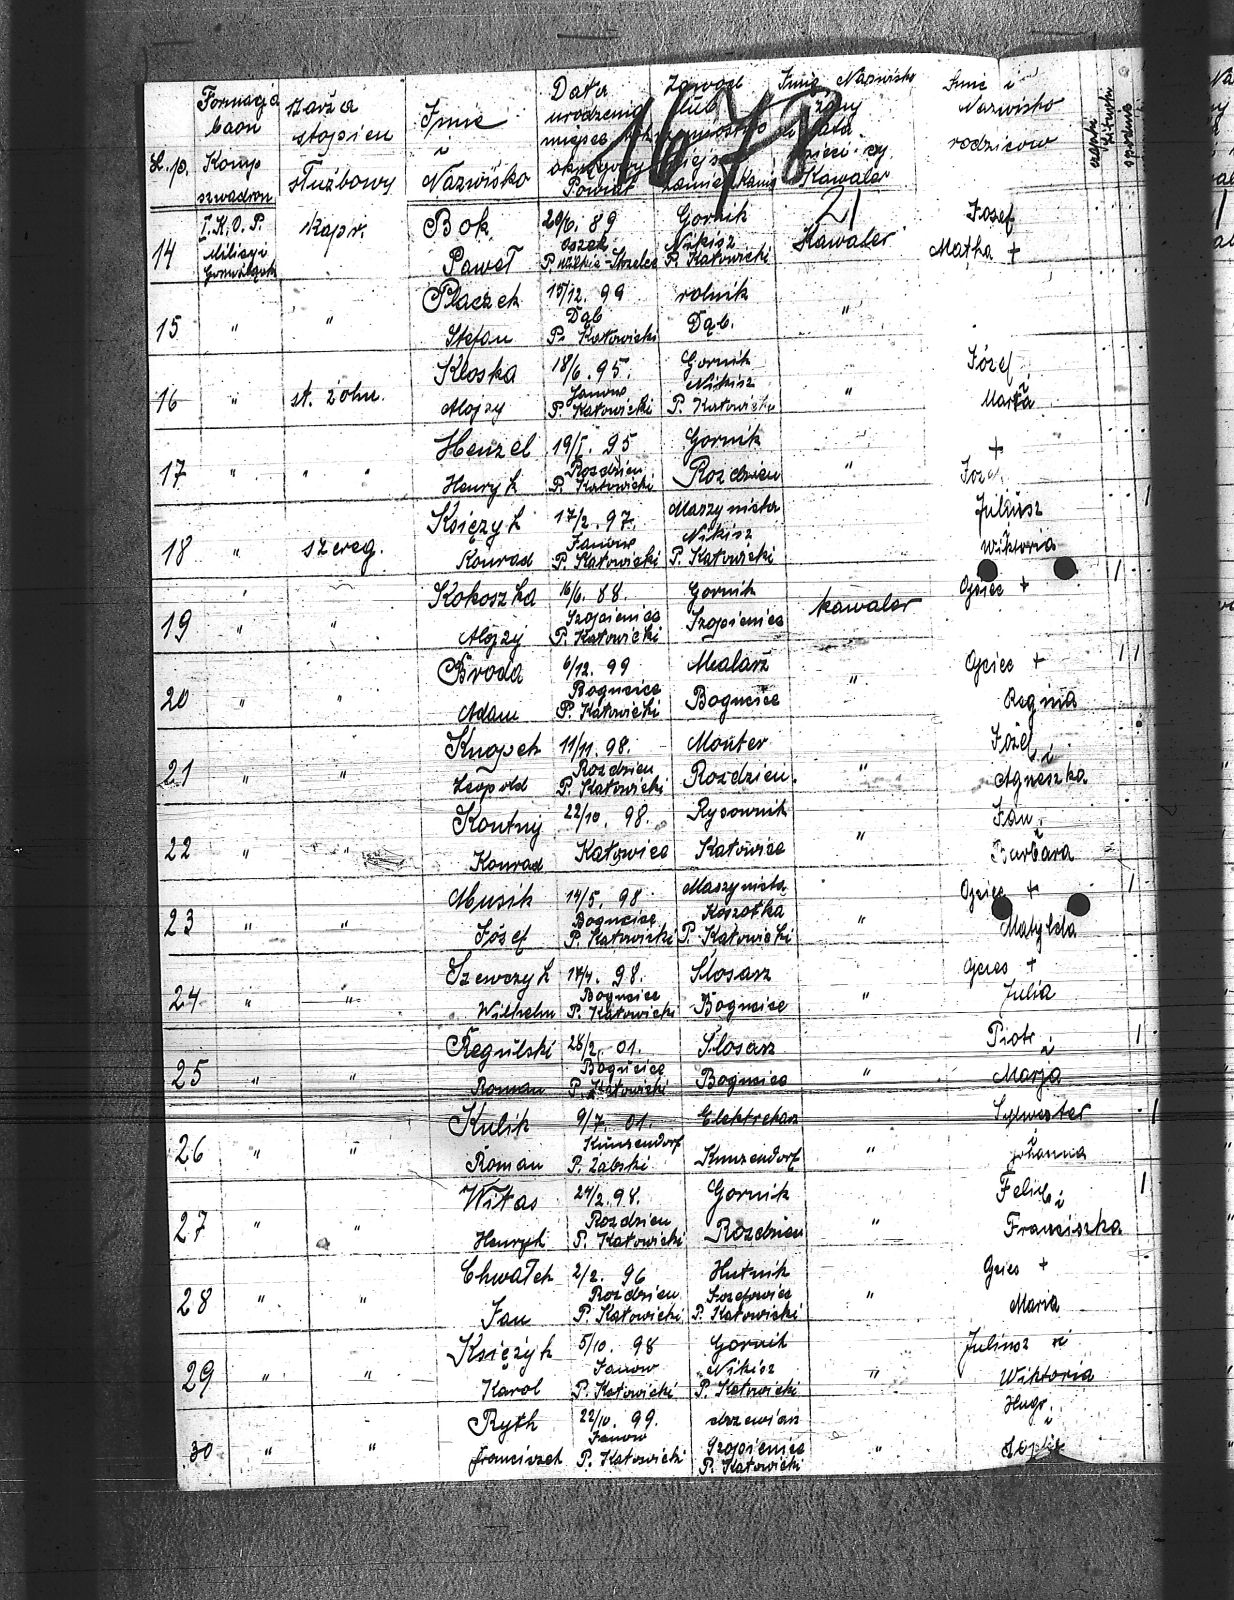 L.p.
Formacja baon Komp szwadron
szarża stopien służbowy
Imie i Nazwisko
Data urodzenia miejsce okręgowy Powiat
Zawod lub
Imie, Nazwisko żony data dzieci czy Kawaler
Imie i Nazwisko rodzicow
1678
21
14 I.K.O.P. Milicyi kapr. Bok 29/6. 89 Gornik Kawaler Josef
Paweł Nikisz P. Katowicki Matka +
15 " " Placzek 15/12. 99 rolnik "
Stefan Dąb P. Katowicki Dąb.
16 " st. żołn. Kłoska 18/6. 95. Gornik " Józef
Alojzy Janów P. Katowicki Nikisz P. Katowicki Marta
17 " " " Henzel 19/I. 95 Gornik " +
Henryk Rozdzien P. Katowicki Rozdzien Jozef
18 " szereg. Księzyk 17/2. 97. Maszynista Juliusz
Konrad Janow P. Katowicki Nikisz P. Katowicki Wiktoria
19 " " Kokoszka 16/6. 88. Gornik kawaler Ojciec +
Alojzy Szopienice P. Katowicki Szopienice
20 " " Broda 6/12. 99 Malarz " Ojciec +
Adam Bogucice P. Katowicki Bogucice Regina
21 " " Knopek 11/11. 98. Monter " Józef i
Leopold Rozdzien P. Katowicki Rozdzien. Agnieszka
22 " " Koutny 22/10. 98. Rysownik " Jan i
Konrad Katowice Katowice Barbara
23 " " Musik 14/5. 98 Maszynista " Ojciec +
Józef Bogucice P. Katowicki P. Katowicki Matylda
24 " " Szewczyk 98. Slosarz " Ojciec +
Wilhelm Bogucice P. Katowicki Bogucice Julia
25 " " Regulski 28/2. 01. Slosarz " Piotr i
Roman Bogucice P. Katowicki Bogucice Marja
26 " " Kulik 9/7. 01. Elektrekarz " Sylwester i
Roman Kunzendorf P. Zabrski Kunzendorf Johanna
27 " " Witas 24/2. 98. Gornik " Felix i
Henryk Rozdzien P. Katowicki Rozdzien Franciszka
28 " " Chwałek 2/2. 96 Hutnik " Ojciec +
Jan Rozdzien P. Katowicki Jozefowiec P. Katowicki Maria
29 " " Księżyk 5/10. 98 Gornik " Juliusz i
Karol Janow P. Katowicki Nikisz P. Katowicki Wiktoria
30 " " Ryth 22/10. 99. "
Franciszek Janow P. Katowicki Szopienice P. Katowicki